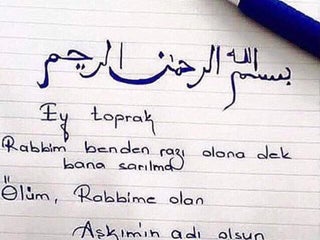 بسم الله الرحمن الرحيم
Ey toprak
Rabbim benden razı olana dek
bana sarılma
Ölüm, Rabbime olan
Aşkımın adı olsun